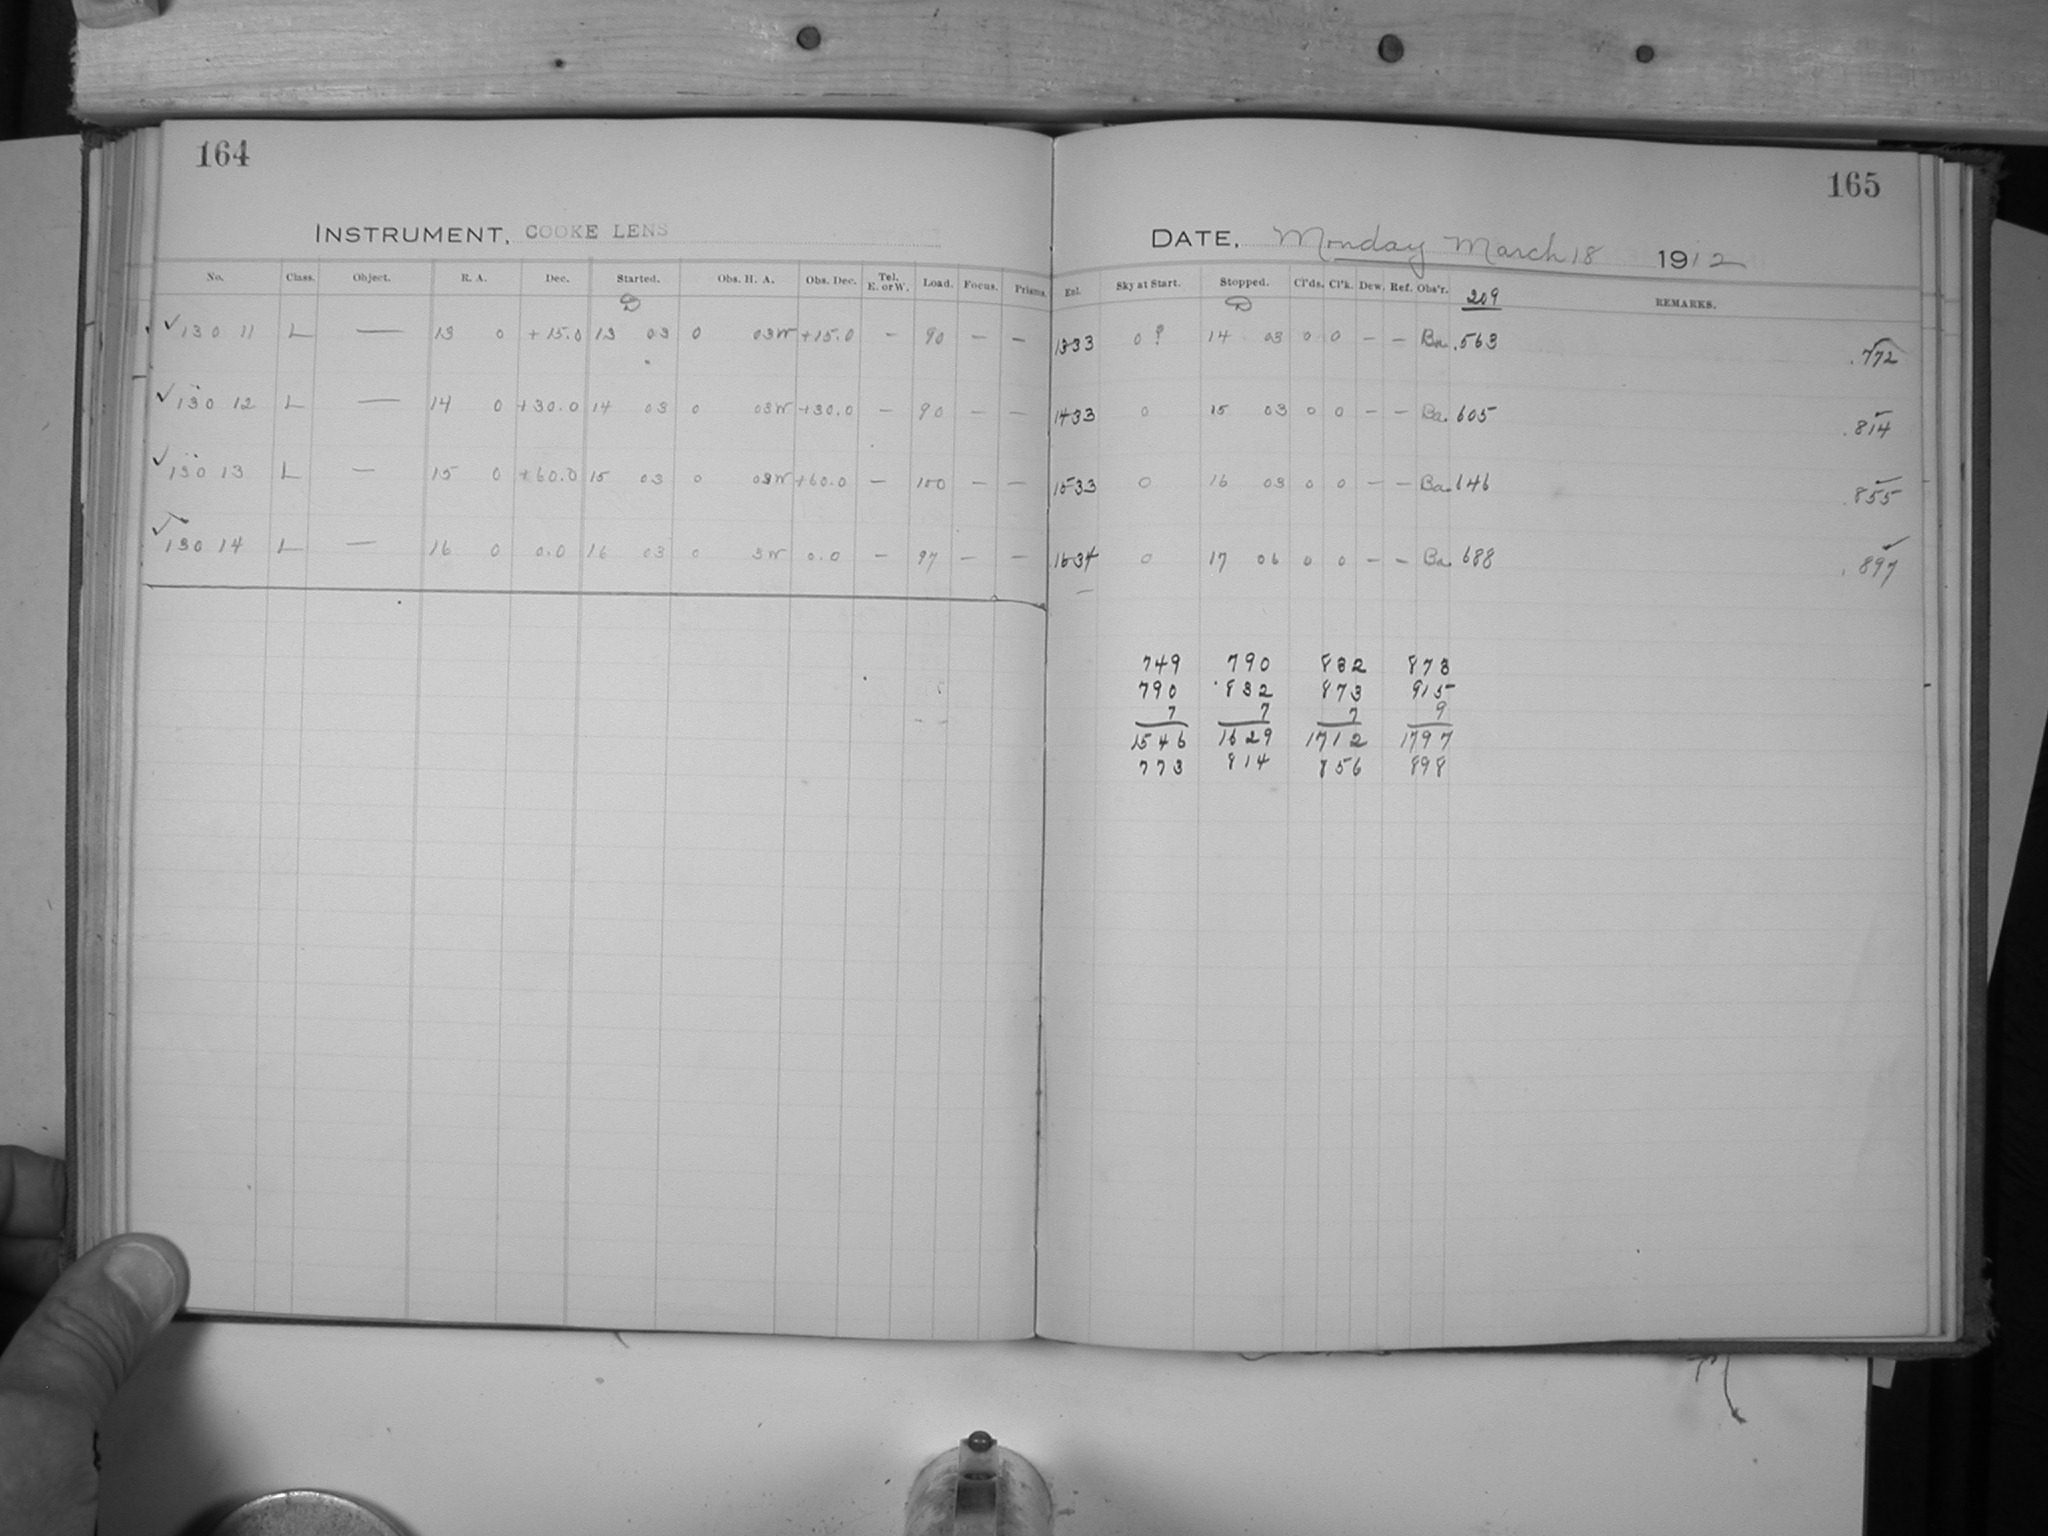 164
INSTRUMENT, COOKE LENS
No. Class. Object. R. A. Dec. Started. Obs. H. A. Obs. Dec. Tel. E. or W. Load. Focus. Prisms.
D
✓ 130 11 L — 13 0 +15.0 13 03 0 03W +15.0 — 90 — —
✓ 130 12 L — 14 0 +30.0 14 03 0 03W +30.0 — 90 — —
✓ 130 13 L — 15 0 +60.0 15 03 0 03W +60.0 — 100 — —
✓ 130 14 L — 16 0 0.0 16 03 0 3W 0.0 — 97 — —
165
DATE, Monday March 18 1912
Exl. Sky at Start. Stopped. Cl'ds. Cl'k. Dew. Ref. Obs'r. 209 REMARKS.
D
1333 0? 14 03 0 0 — — Ba .563 .772
1433 0 15 03 0 0 — — Ba. 605 .814
1533 0 16 03 0 0 — — Ba. 646 .855
1634 0 17 06 0 0 — — Ba. 688 .897
749 790 832 873
790 832 873 915
7 7 7 9
1546 1629 1712 1797
773 814 856 898